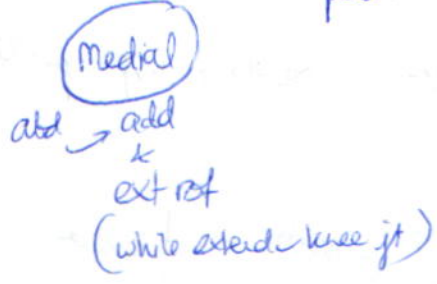 Medial
abd → add
&
ext rot
(while extend knee jt)